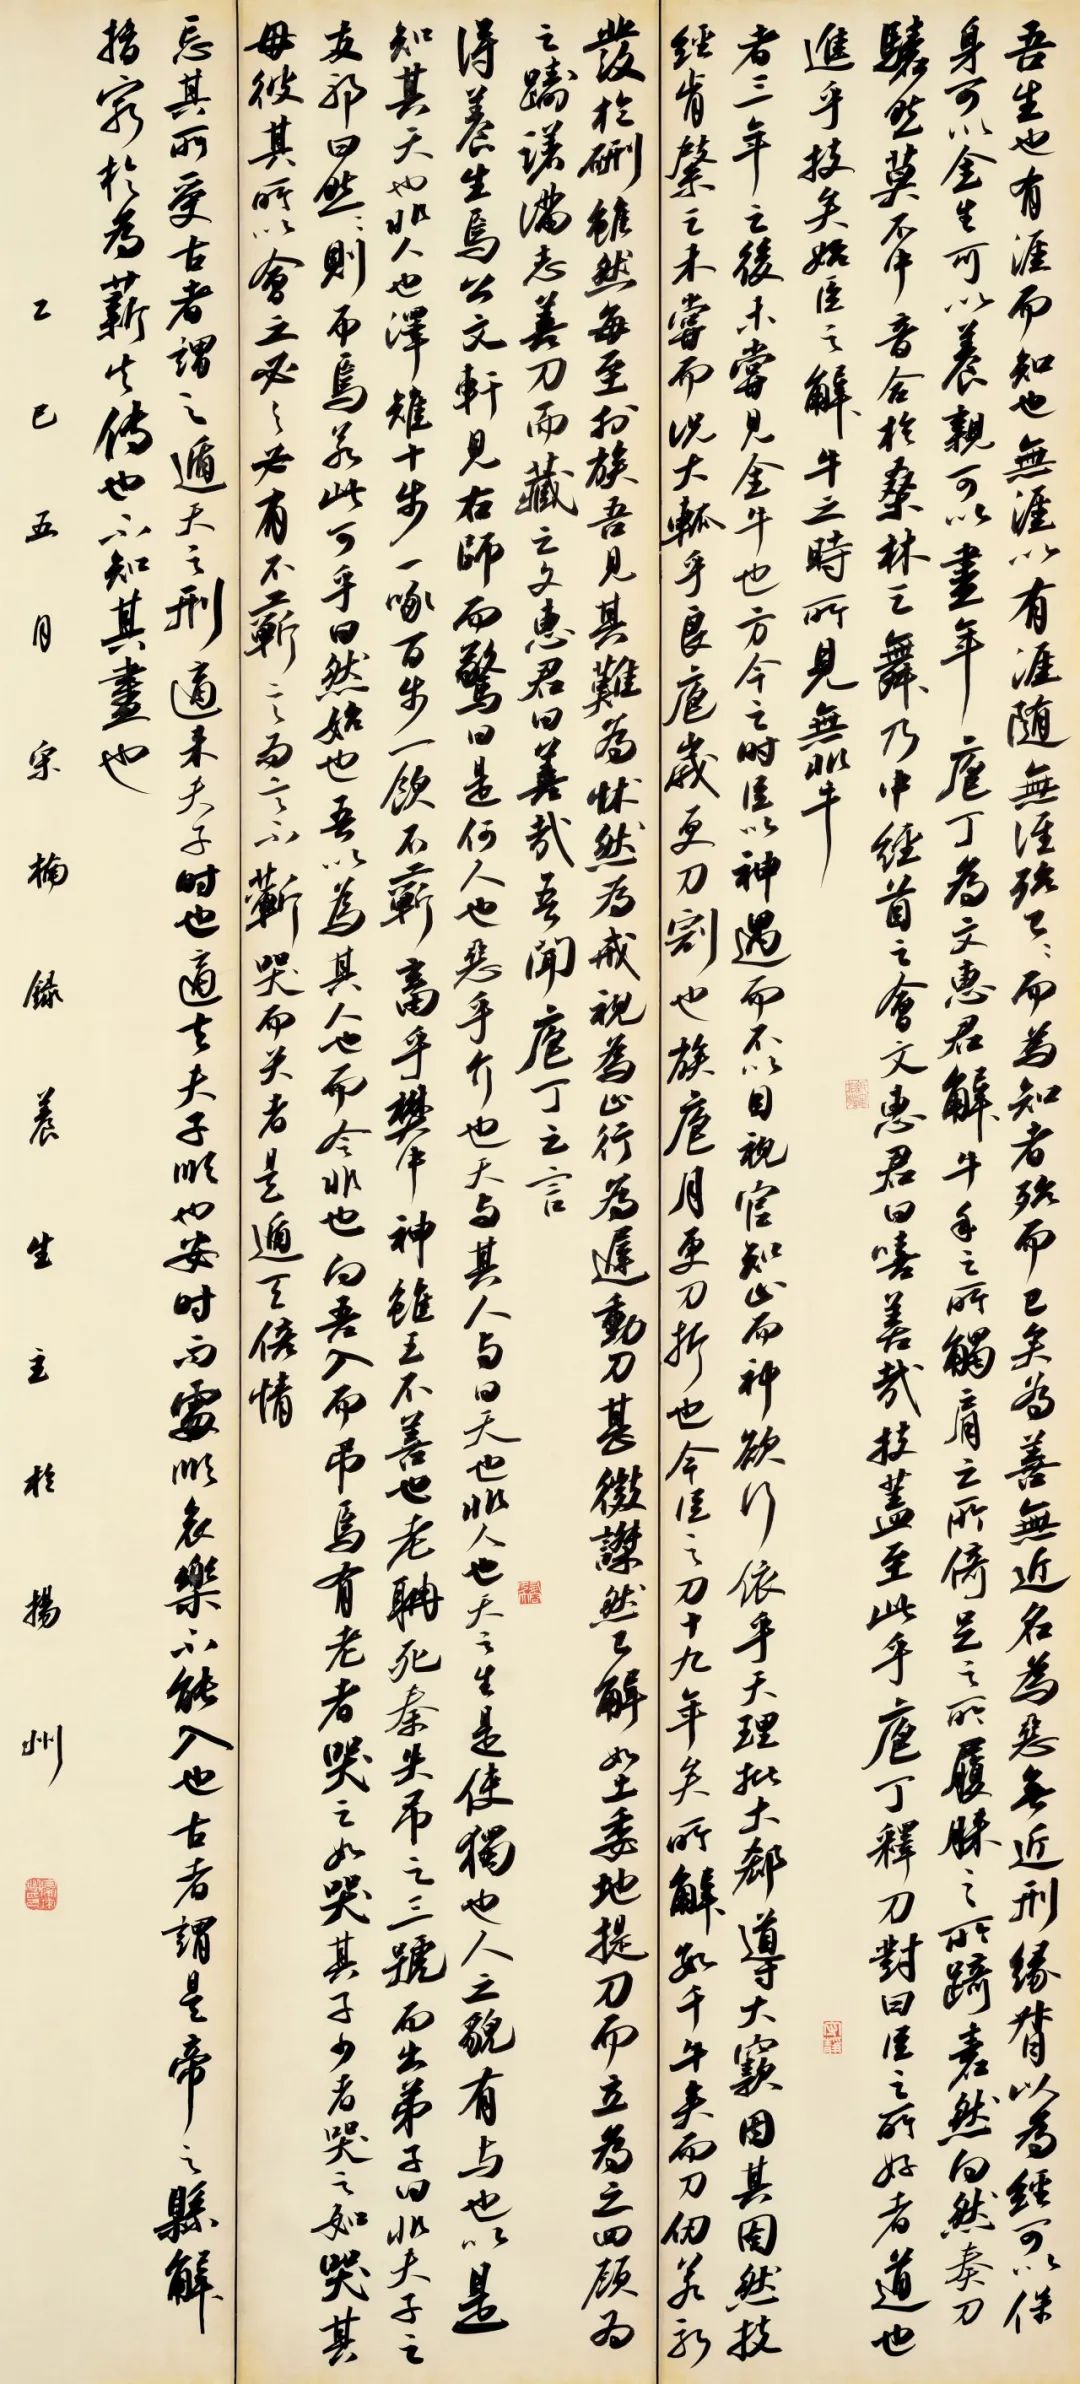 吾生也有涯而知也無涯以有涯随無涯殆已〻而為知者殆而已矣為善無近名為惡無近刑緣督以為經可以保
身可以全生可以養親可以盡年庖丁為文惠君解牛手之所觸肩之所倚足之所履膝之所踦砉然向然奏刀
騞然莫不中音合於桑林之舞乃中經首之會文惠君曰嘻善哉技蓋至此乎庖丁釋刀對曰臣之所好者道也
進乎技矣始臣之解牛之時所見無非牛
者三年之後未嘗見全牛也方今之时臣以神遇而不以目視官知止而神欲行依乎天理批大郤導大窾因其固然技
經肯綮之未嘗而況大軱乎良庖歲更刀割也族庖月更刀折也今臣之刀十九年矣所解數千牛矣而刀仞若新
發於硎雖然每至於族吾見其難為怵然為戒視為止行為遲動刀甚微謋然已解如土委地提刀而立為之四顧為
之躊躇滿志善刀而藏之文惠君曰善哉吾聞庖丁之言
得養生焉公文軒見右師而驚曰是何人也惡乎介也天与其人与曰天也非人也天之生是使獨也人之貌有与也以是
知其天也非人也澤雉十步一啄百步一飲不蘄畜乎樊中神雖王不善也老聃死秦失弔之三號而出弟子曰非夫子之
友邪曰然〻則弔焉若此可乎曰然始也吾以為其人也而今非也向吾入而弔焉有老者哭之如哭其子少者哭之如哭其
母彼其所以會之必〻必有不蘄言而言不蘄哭而哭者是遁天倍情
忘其所受古者謂之遁天之刑適來夫子时也適去夫子順也安时而處順哀樂不能入也古者謂是帝之縣解
指窮於為薪火傳也不知其盡也
乙巳五月宋楠錄養生主於揚州